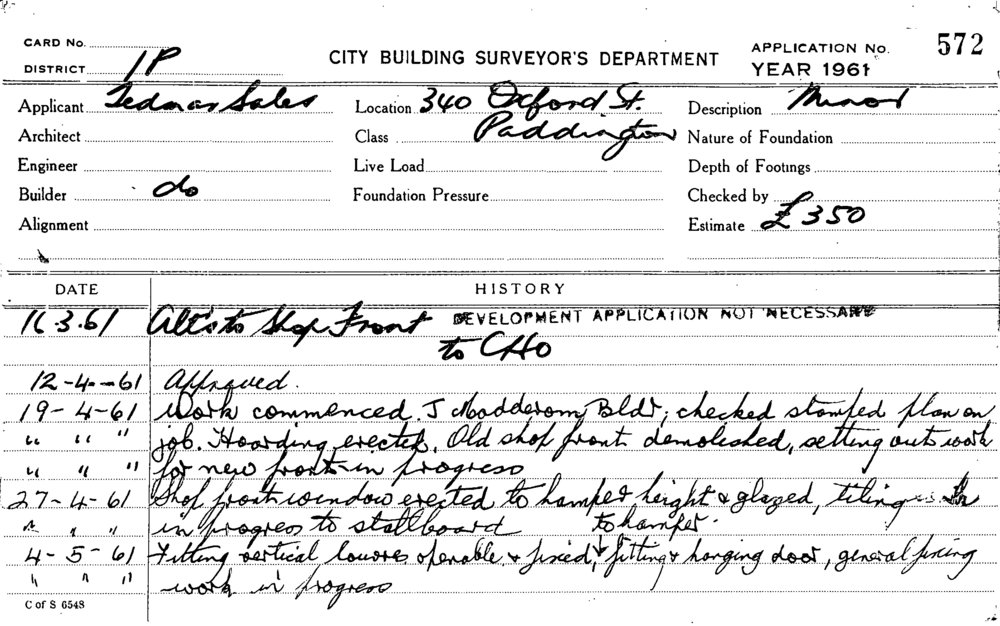 CARD No. CITY BUILDING SURVEYOR'S DEPARTMENT APPLICATION No. 572
DISTRICT 1P YEAR 1961
Applicant Tedmar Sales Location 340 Oxford St. Description Minor
Architect Class Paddington Nature of Foundation
Engineer Live Load Depth of Footings
Builder do Foundation Pressure Checked by
Alignment Estimate £350
DATE HISTORY
16.3.61 Alts to Shop Front DEVELOPMENT APPLICATION NOT NECESSARY
to CHO
12-4-61 Approved.
19-4-61 Work commenced. J Madderom, Bldr; checked stamped plan on
" " " job. Hoarding erected. Old shop front demolished, setting out work
" " " for new front in progress
27-4-61 Shop front window erected to hamper height & glazed, tiling
" " " in progress to stallboard to hamper.
4-5-61 Fitting vertical louvre openable & fixed, fitting & hanging door, general fixing
" " " work in progress
C of S 6548